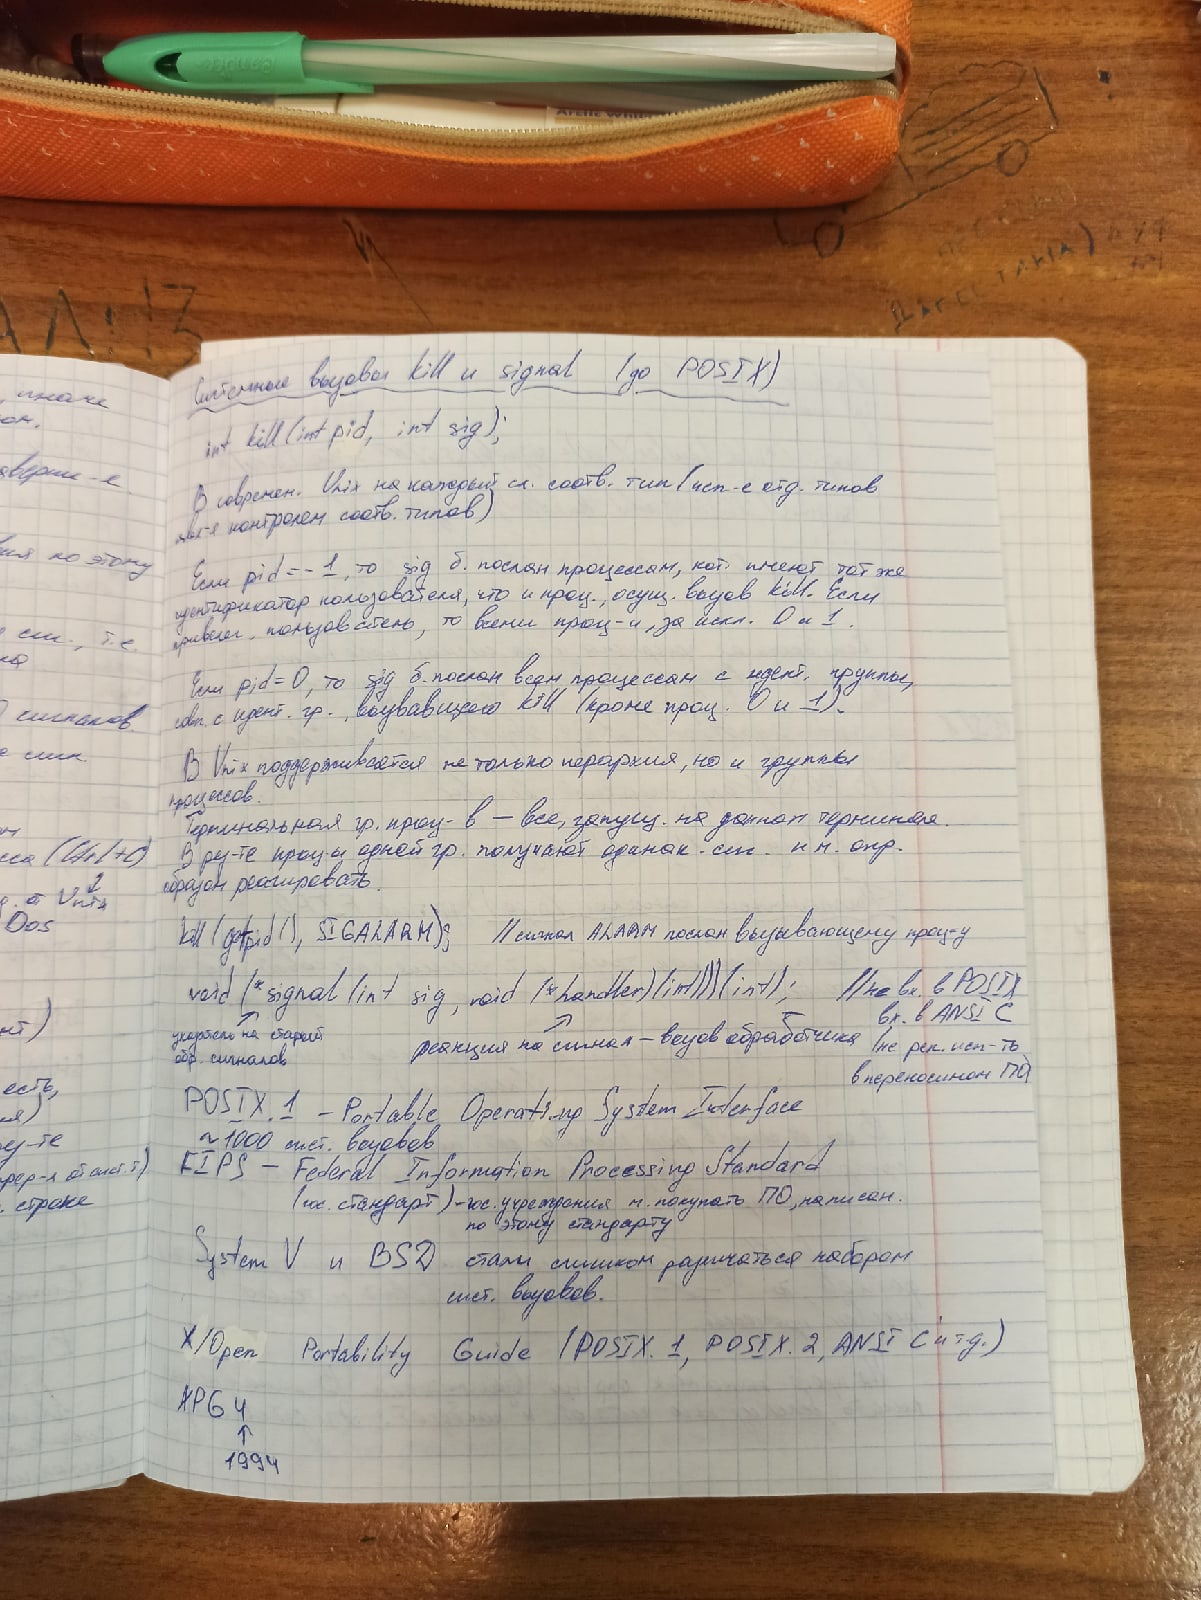 Системные вызовы kill и signal (до POSIX)
int kill(int pid, int sig);
В современ. Unix на каждый сл. соотв. тип (исп-е отд. типов
явл-я контролем соотв. типов)
Если pid=-1, то sig б. послан процессам, кот. имеют тот же
идентификатор пользователя, что и проц., осущ. вызов kill. Если
привелег. пользователь, то всеми проц-и, за искл. 0 и 1.
Если pid=0, то sig б. послан всем процессам с идент. группы,
совп. с идент. гр., вызвавшего kill (кроме проц. 0 и 1).
В Unix поддерживается не только иерархия, но и группы
процессов.
Терминальная гр. проц-в – все, запущ. на данном терминале.
В рез-те проц-ы одной гр. получают одинак. сиг. и м. опр.
образом реагировать.
kill(getpid(), SIGALARM); //сигнал ALARM послан вызывающему проц-у
void (*signal(int sig, void (*handler)(int)))(int); //не вх. в POSIX
вх. в ANSI C
указатель на старый
обр. сигналов
реакция на сигнал – вызов обработчика
(не рек. исп-ть
в переносимом ПО)
POSIX.1 – Portable Operating System Interface
~1000 сист. вызовов
FIPS – Federal Information Processing Standard
(гос. стандарт) – гос. учреждения м. покупать ПО, написан.
по этому стандарту
System V и BSD стали слишком различаться набором
сист. вызовов.
X/Open Portability Guide (POSIX.1, POSIX.2, ANSI C и т.д.)
XPG 4
↑
1994
, иначе
по этому
т.е
сигналов
(Ctrl+C)
Unix
Dos
есть,
строке